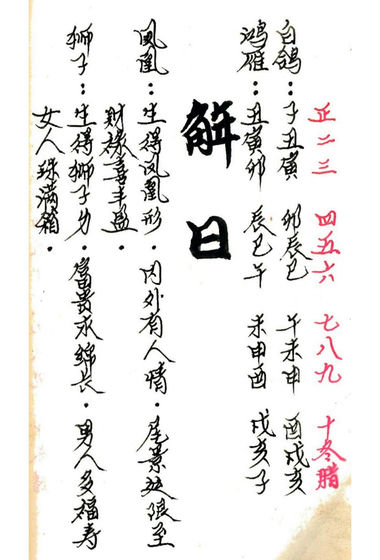 正二三 四五六 七八九 十冬腊
白鸽：子丑寅 卯辰巳 午未申 酉戌亥
鸿雁：丑寅卯 辰巳午 未申酉 戌亥子
解日
凤凰：生得凤凰形．内外有人情．尾景处限至
财禄喜丰盈．
狮子：生得狮子身．富贵永绵长．男人多福寿
女人珠满箱．